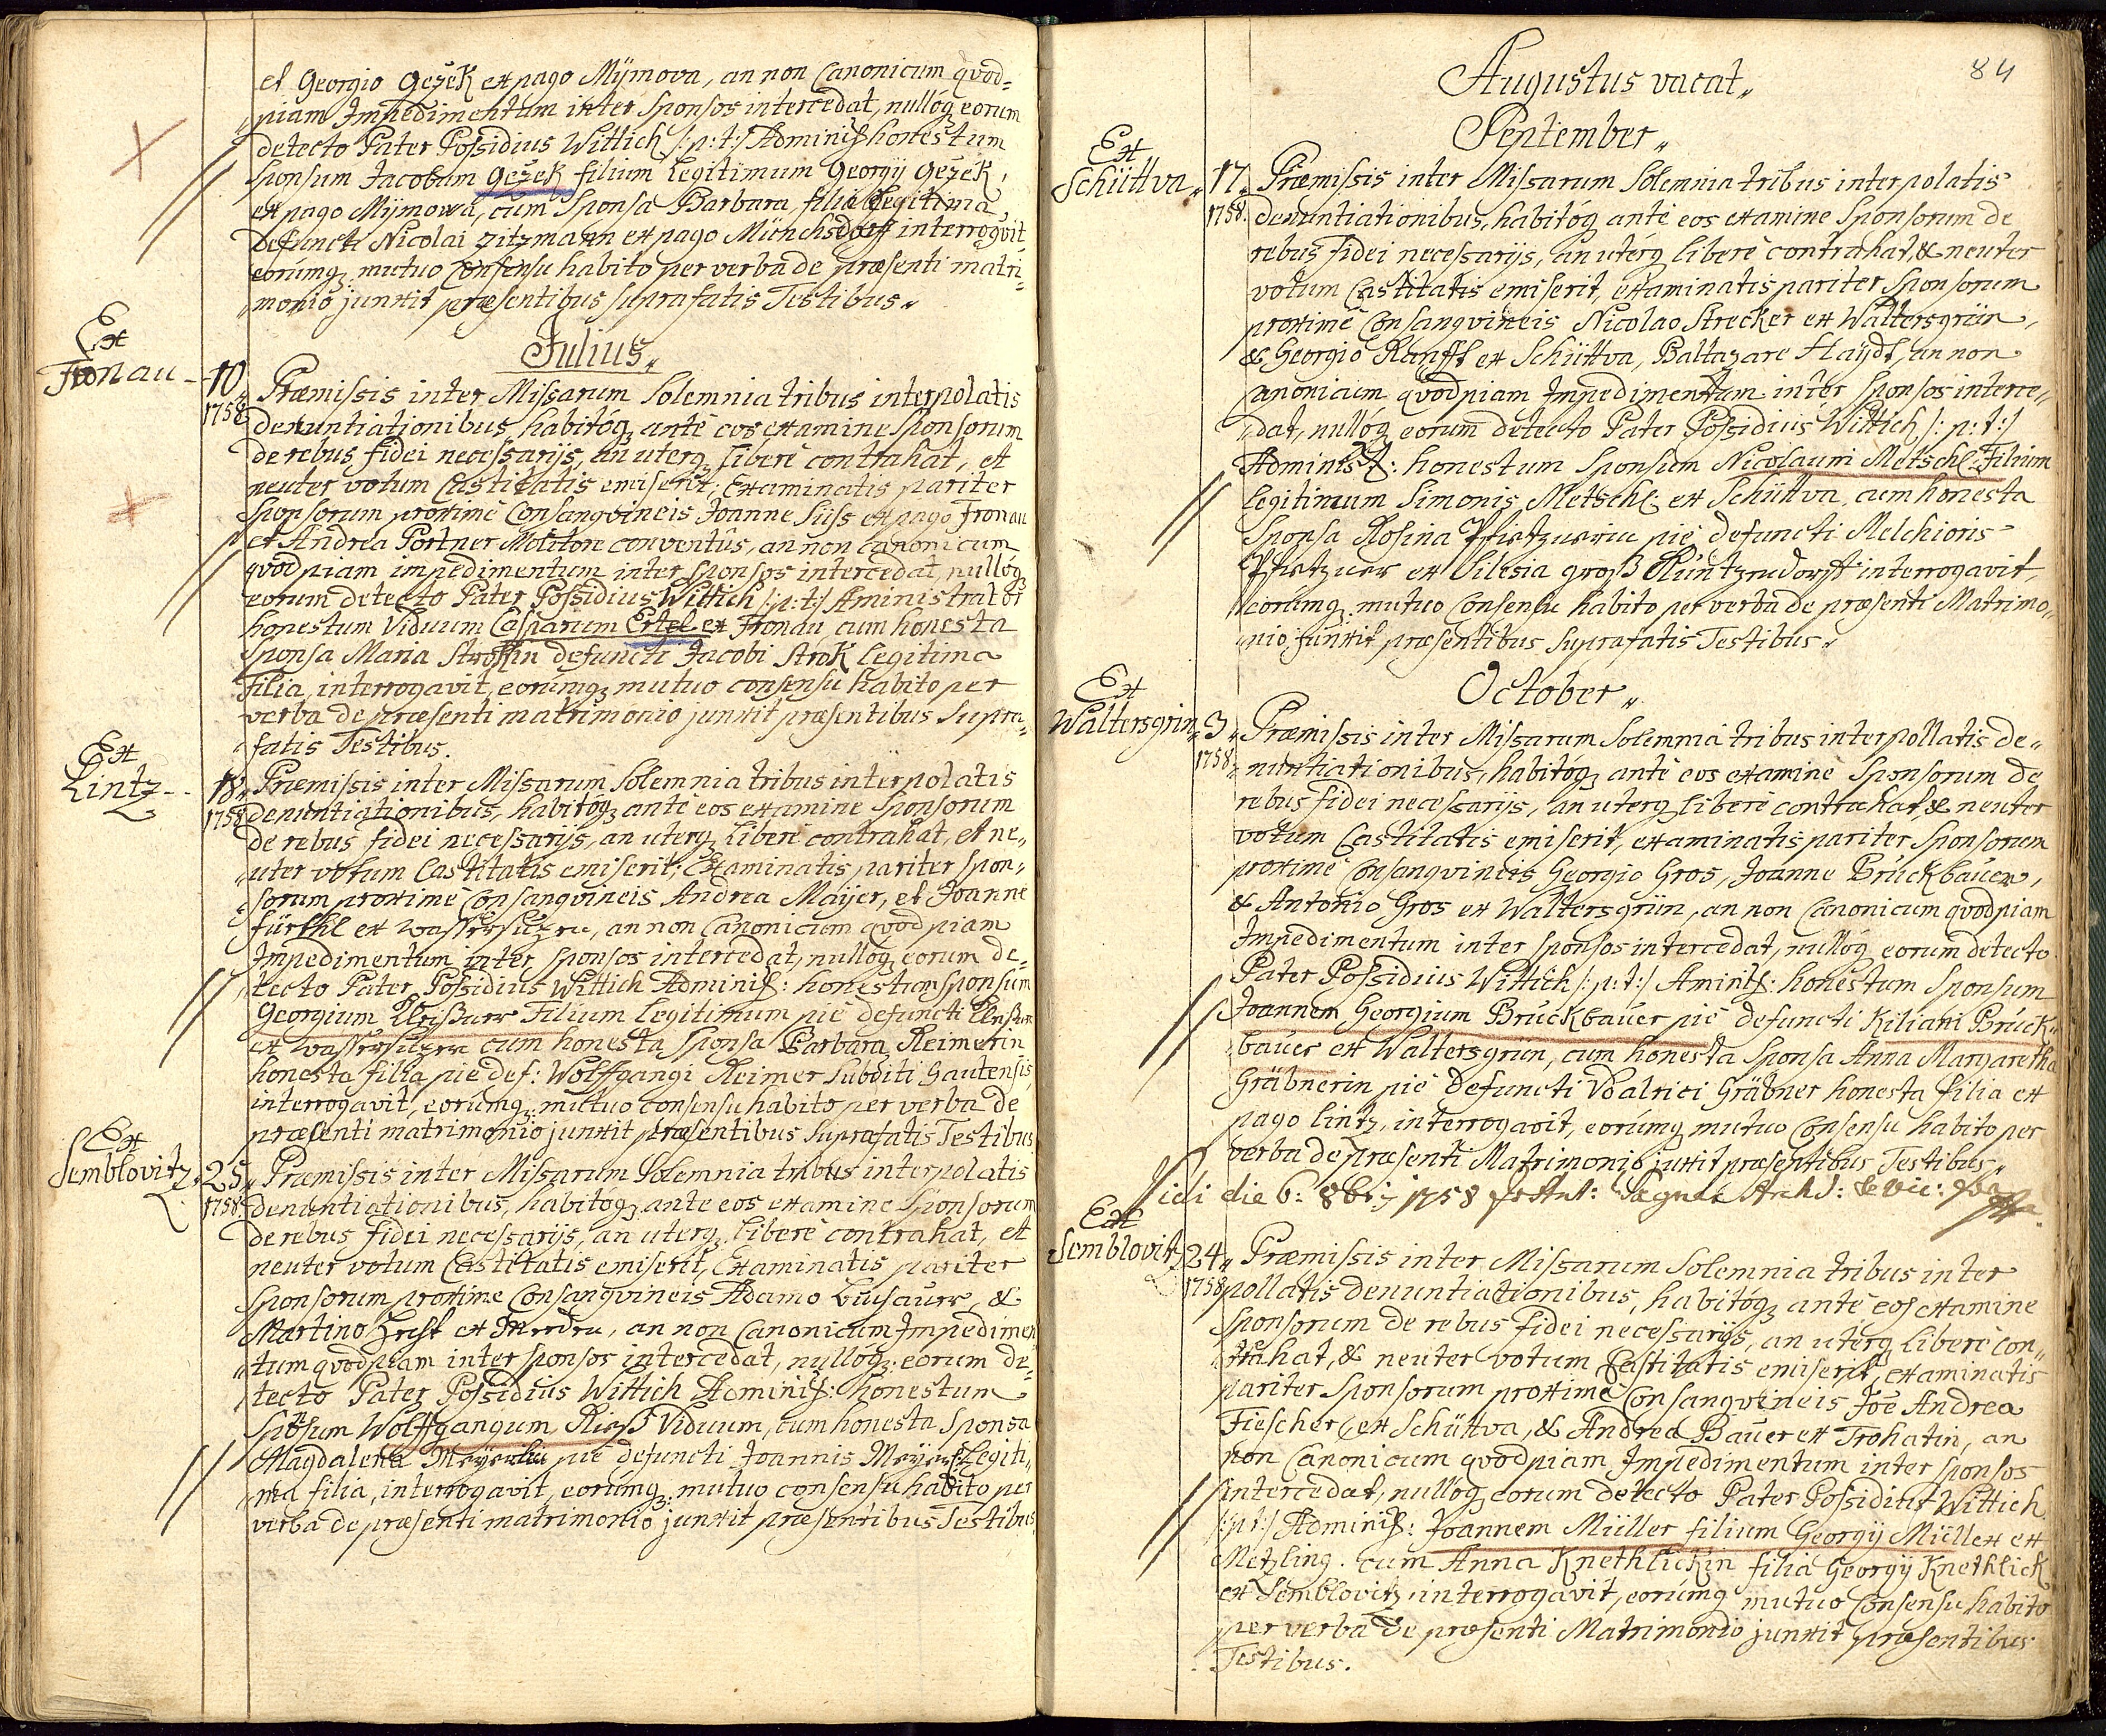 et Georgio Gežek ex pago Mÿmova, an non Canonicum qvod-
„piam Impedimentum inter Sponsos intercedat, nullóq; eorum
detecto Pater Possidius Wittich /:p:t:/ Adminis: honestum
Sponsum Jacobum Gežek filium legitimum Georgÿ Gežek,
ex pago Mÿmowa, cum Sponsa Barbara, filia legitima
defuncti Nicolai Zitzmann ex pago Münchsdorff interrogvit
eorúmq; mutuo consensu habito per verba de præsenti matri-
„monio junxit præsentibus suprafatis Testibus„
Julius„
Ex
Fronau - 10„
1758
Præmissis inter Missarum Solemnia tribus interpolatis
denuntiationibus, habitóq; ante eos examine Sponsorum
de rebus fidei necessarÿs, an uterq; libere contrahat, et
neuter votum Castitatis emiserit; Examinatis pariter
Sponsorum proxime Consangvineis Joanne Süss ex pago Fronau
et Andrea Portner Molitore conventûs, an non canonicum
qvodpiam impedimentum inter Sponsos intercedat, nullóq;
eorum detecto Pater Possidius Wittich /:p:t:/ Aministrator
honestum Viduum Casparum Ertel ex Fronau cum honesta
Sponsa Maria Strokin defuncti Jacobi Strok legitima
Filia, interrogavit, eorúmq; mutuo consensu habito per
verba de præsenti matrimonio junxit præsentibus Supra-
„fatis Testibus.
Ex
Lintz - - 18„
1758
Præmissis inter Missarum Solemnia tribus interpolatis
denuntiationibus, habitóq; ante eos examine Sponsorum
de rebus fidei necessarÿs, an uterq; libere contrahat, et ne-
„uter votum Castitatis emiserit; Examinatis pariter Spon-
„sorum proxime Consangvineis Andrea Maÿer, et Joanne
ex, an non Canonicum qvodpiam
Impedimentum inter Sponsos intercedat, nullóq; eorum de-
„tecto Pater Possidius Wittich Adminis: honestum Sponsum
Georgium Filium legitimum pie defuncti
ex cum honesta Sponsa Barbara Reimerin
honesta filia pie def: Wolffgangi Reimer Subditi Gautensis,
interrogavit, eorúmq; mutuo consensu habito per verba de
præsenti matrimonio junxit præsentibus Suprafatis Testibus
Ex
Semblovitz„ 25„
1758
Præmissis inter Missarum Solemnia tribus interpolatis
denuntiationibus, habitoq; ante eos examine Sponsorum
de rebus fidei necessarÿs, an uterq; libere contrahat, et
neuter votum Castitatis emiserit, Examinatis pariter
Sponsorum proxime Consangvineis Adamo &
Martino ex, an non Canonicum Impedimen
„tum qvodpiam inter Sponsos intercedat, nullóq; eorum de-
tecto Pater Possidius Wittich Adminis: honestum
Sponsum Wolffgangum Viduum, cum honesta Sponsa
Magdalena pie defuncti Joannis Legiti-
„ma filia, interrogavit, eorúmq; mutuo consensu habito per
verba de præsenti matrimonio junxit præsentibus Testibus.
84
Augustus vacat„
September„
Ex
Schüttva„ 17„
1758.
Præmissis inter Missarum Solemnia tribus interpolatis
denuntiationibus, habitóq; ante eos examine Sponsorum de
rebus fidei necessarÿs, an uterq; libere contrahat, & neuter
votum Castitatis emiserit, examinatis pariter Sponsorum
proxime Consangvineis Nicolao Strecker ex Waltersgrün,
& Georgio Ranfft ex Schüttva, Baltazare Haÿdt, an non
Canonicum qvodpiam Impedimentum inter Sponsos interce-
„dat, nullóq; eorum detecto Pater Possidius Wittich /:p:t:/
Administ: honestum Sponsum Nicolaum Metschl: Filium
legitimum Simonis Metschl: ex Schüttva, cum honesta
Sponsa Rosina pie defuncti Melchioris
ex Silesia interrogavit,
eorúmq; mutuo Consensu habito per verba de præsenti Matrimo-
„nio junxit præsentibus suprafatis Testibus„
October„
Ex
Waltersgrin„ 3„
1758„
Præmissis inter Missarum Solemnia tribus interpollatis de-
„nuntiationibus, habitóq; ante eos examine Sponsorum de
rebus fidei necessarÿs, an uterq; libere contrahat & neuter
votum Castitatis emiserit, examinatis pariter Sponsorum
proxime Consangvineis Georgio Gros, Joanne Brückbauer,
& Antonio Gros ex Waltersgrün, an non Canonicum qvodpiam
Impedimentum inter Sponsos intercedat, nullóq; eorum detecto
Pater Possidius Wittich /:p:t:/ Aminis: honestum Sponsum
Joannem Georgium Brückbauer pie defuncti Kiliani Brück-
„bauer ex Waltersgrün, cum honesta Sponsa Anna Margaretha
Gräbnerin pie defuncti Vdalrici Gräbner honesta filia ex
pago Lintz, interrogavit, eorúmq; mutuo Consensu habito per
verba de præsenti Matrimonio juxit præsentibus Testibus„
Vidi die 6: 8bris 1758
Ex
Semblovitz 24„
1758
Præmissis inter Missarum Solemnia tribus inter
pollatis denuntiationibus, habitóq; ante eos examine
Sponsorum de rebus Fidei necessarÿs, an uterq; libere con-
„trahat, & neuter votum Castitatis emiserit, examinatis
pariter Sponsorum proxime Consangvineis Joe Andrea
Fiescher ex Schüttva, & Andrea Bauer ex Trohatin, an
non Canonicum qvodpiam Impedimentum inter Sponsos
intercedat, nullóq; eorum detecto Pater Possidius Wittich
/:p:t:/ Adminis: Joannem Müller filium Georgÿ Müller ex
Metzling. cum Anna Knethlickin filia Georgÿ Knethlick
ex Semblovitz, interrogavit, eorúmq; mutuo Consensu habito
per verba de præsenti Matrimonio junxit præsentibus
Testibus.